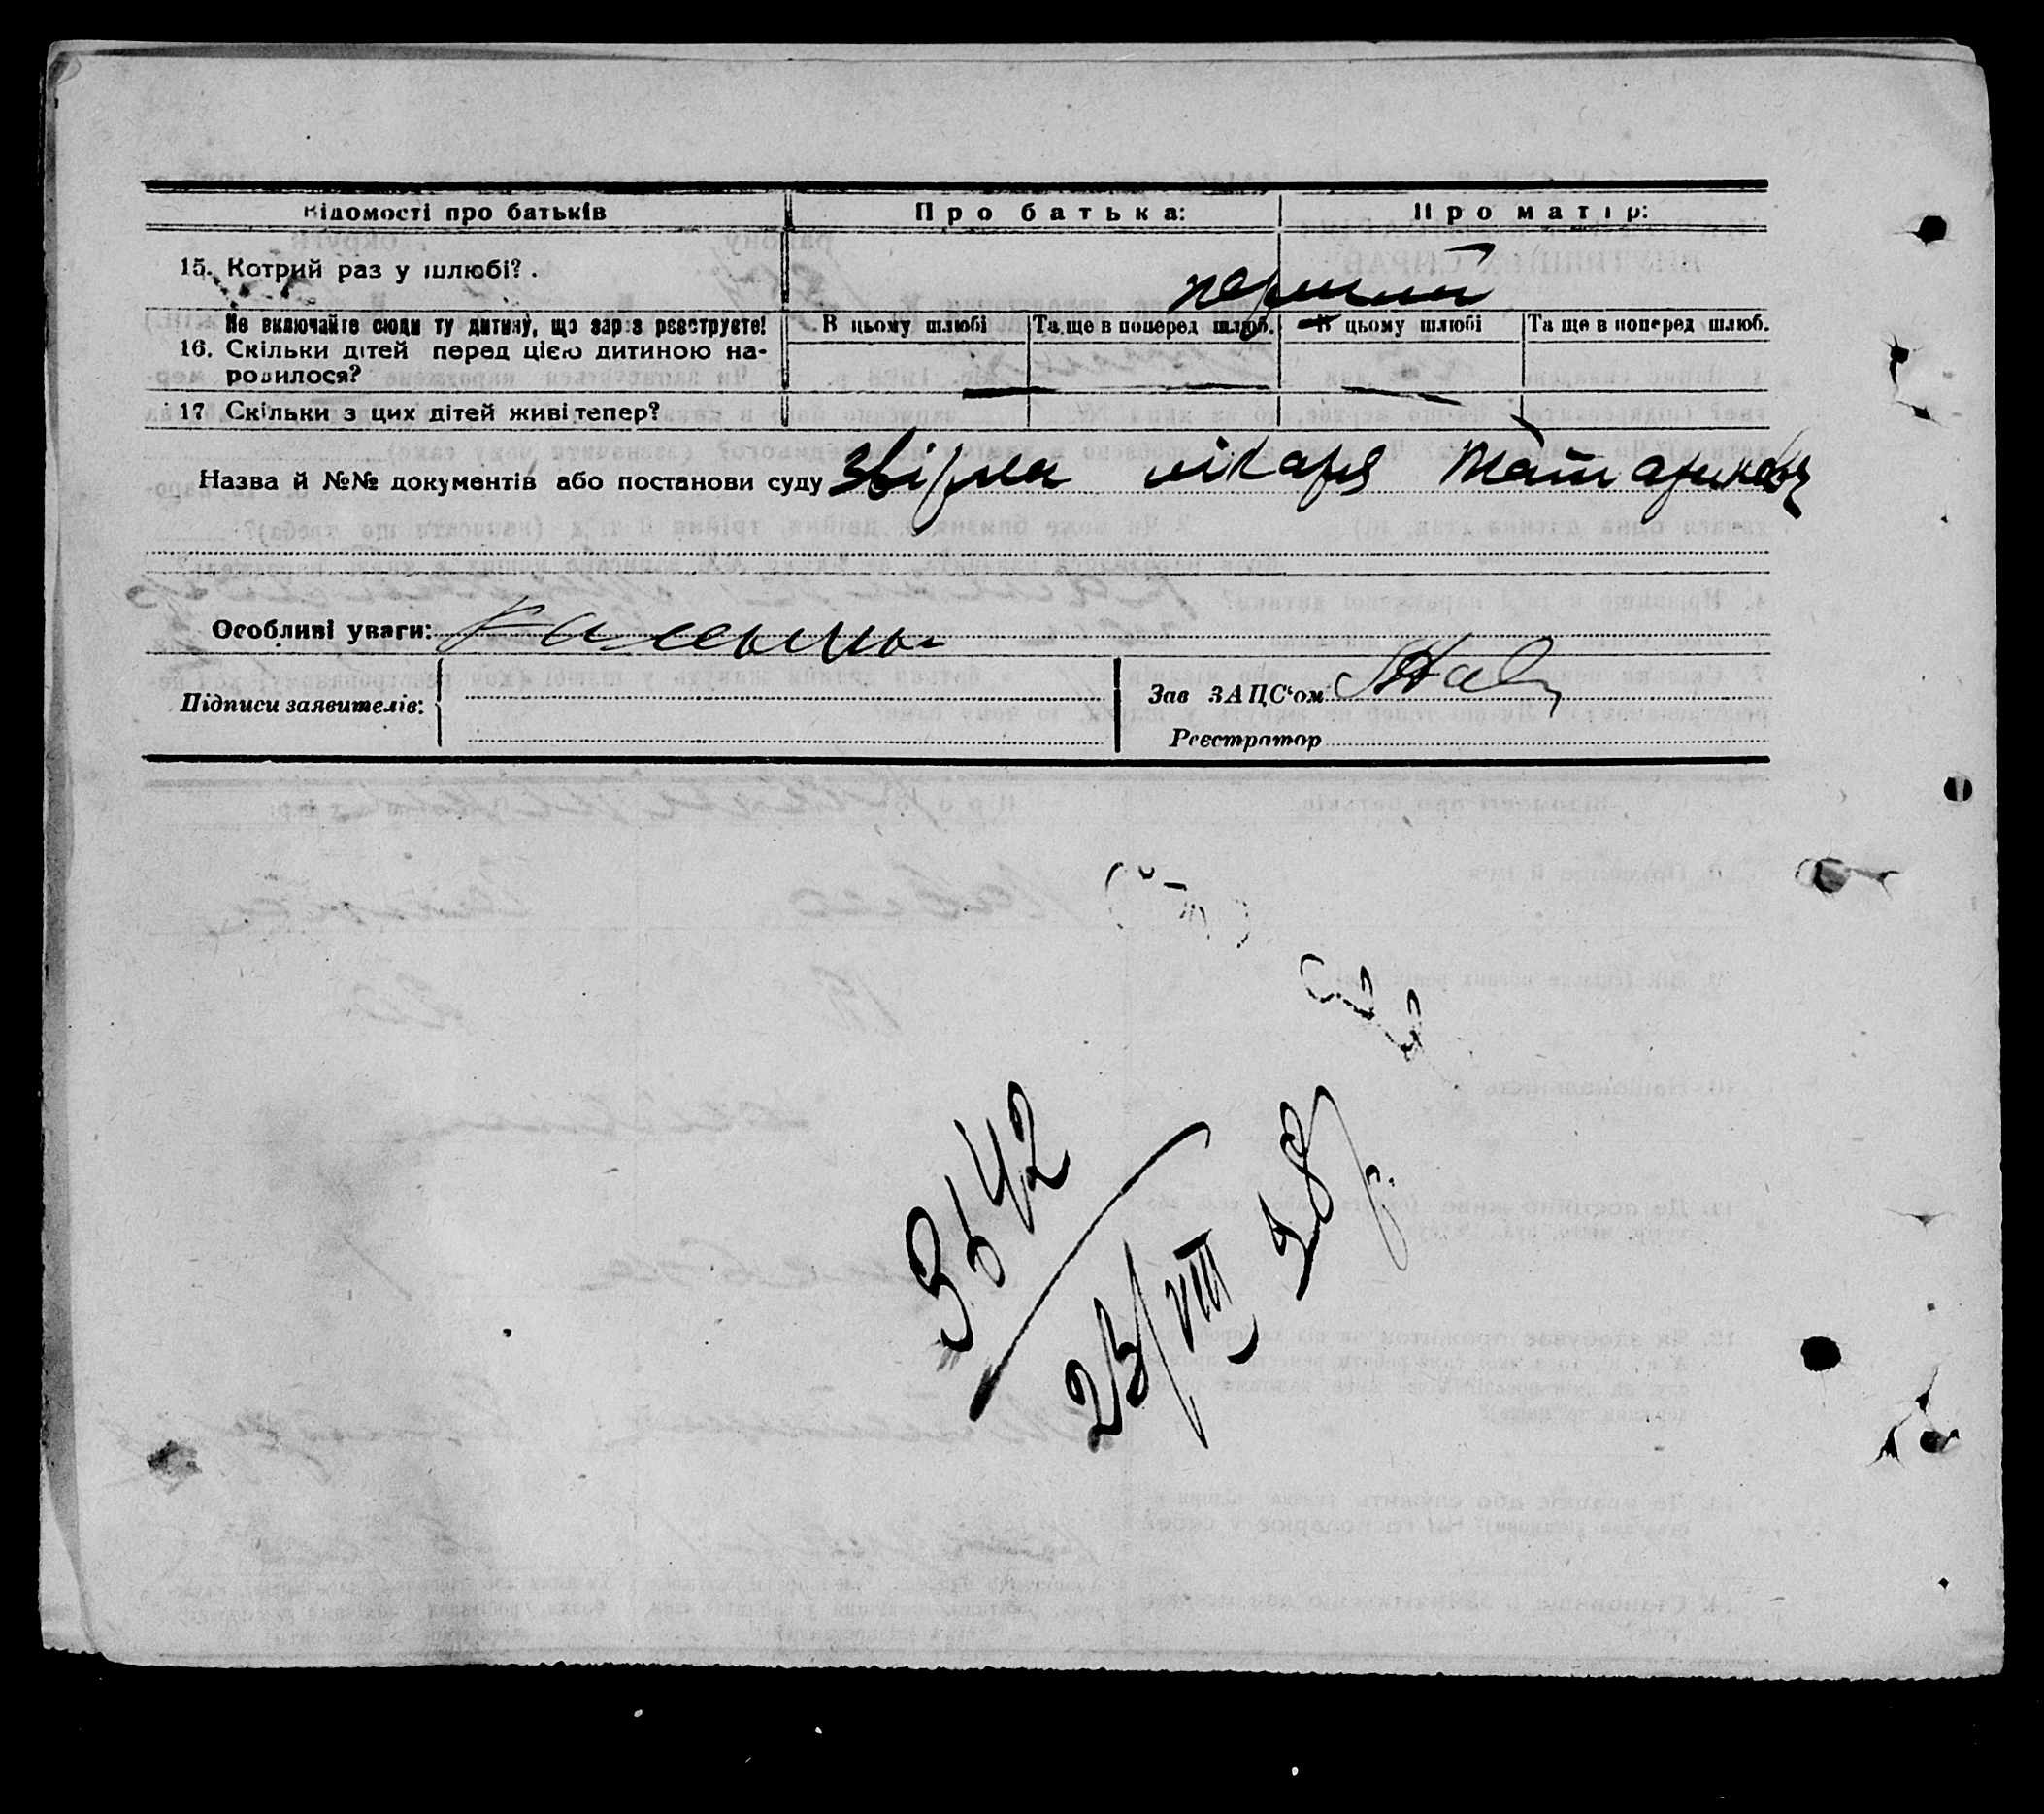 Відомості про батьків Про батька: Про матір:
15. Котрий раз у шлюбі? . перший
Не включайте сюди ту дитину, що зараз реєструєте! В цьому шлюбі Та ще в поперед шлюб. В цьому шлюбі Та ще в поперед шлюб.
16. Скільки дітей перед цією дитиною на-
родилося?
17 Скільки з цих дітей живі тепер?
Назва й №№ документів або постанови суду лікаря
Особливі уваги:
Підписи заявителів: Зав ЗАЦС'ом
Реєстратор
3642
25/VIII 28р.